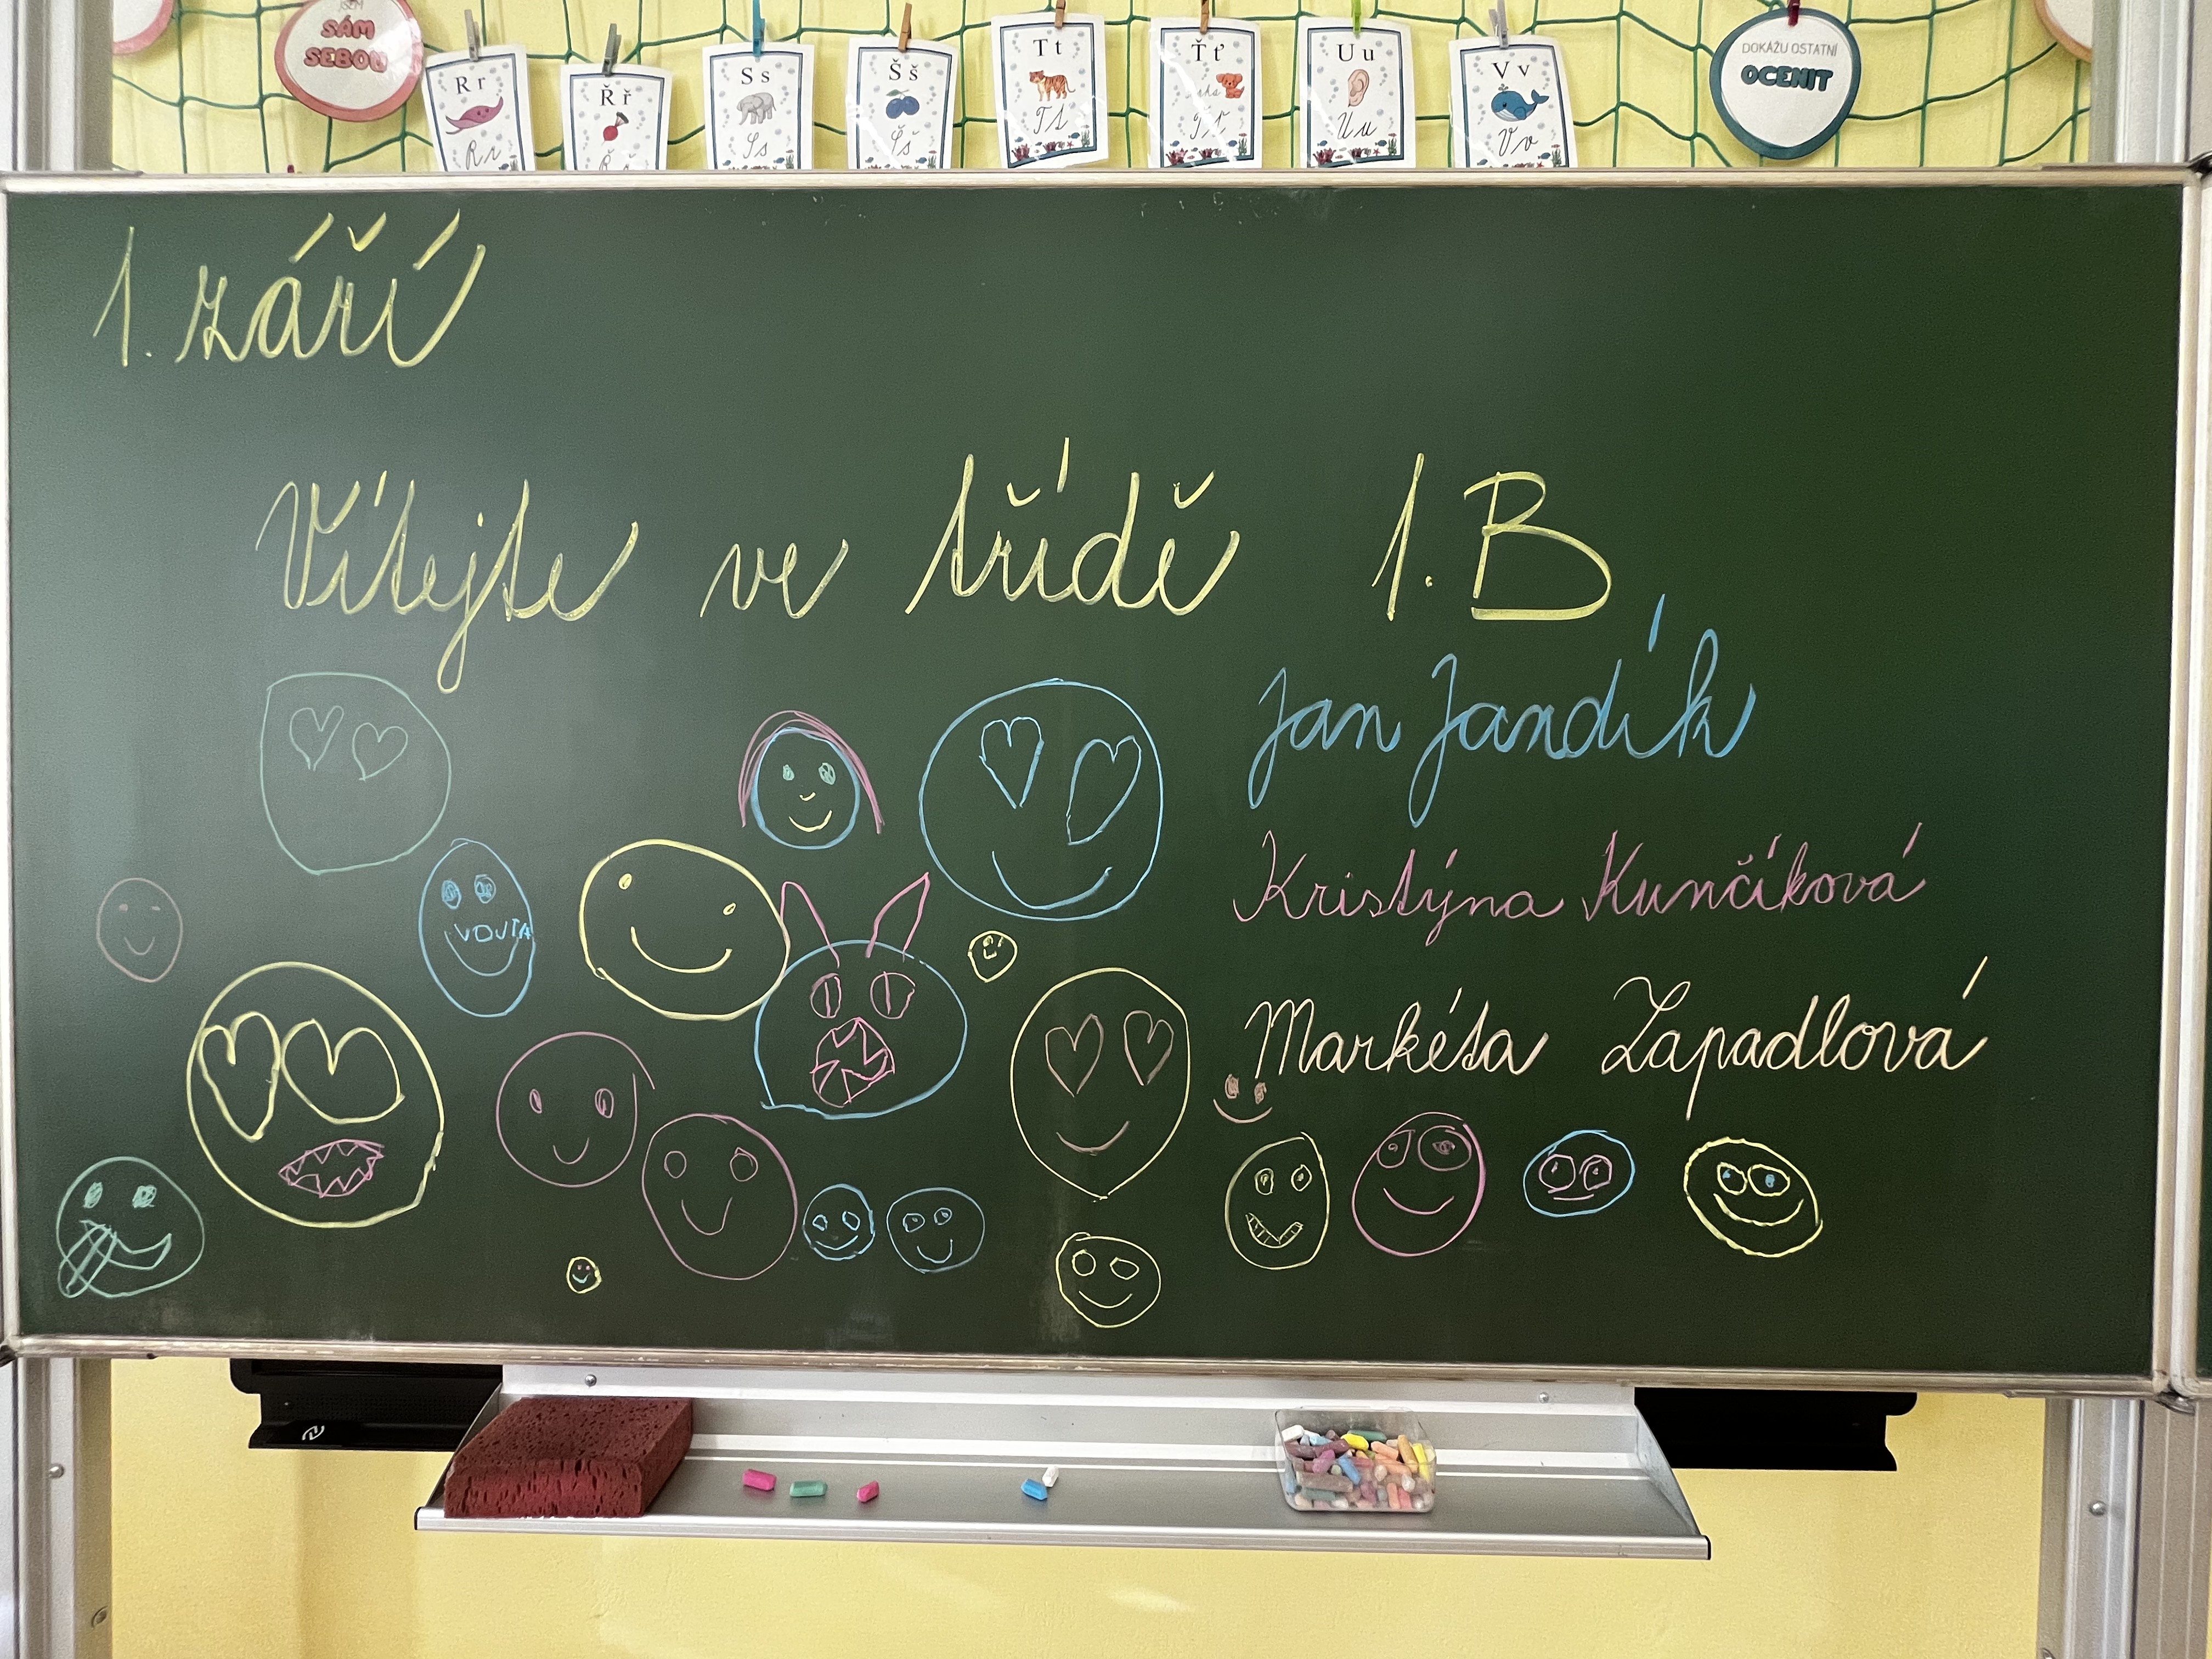 JSEM
SÁM
SEBOU
R r
Rr
Ř ř
S s
Ss
Š š
Šš
T t
Tt
Ť ť
Ťť
U u
Uu
V v
Vv
DOKÁŽU OSTATNÍ
OCENIT
1. září
Vítejte ve třídě 1. B
Jan Jandík
Kristýna Kunčíková
Markéta Zapadlová